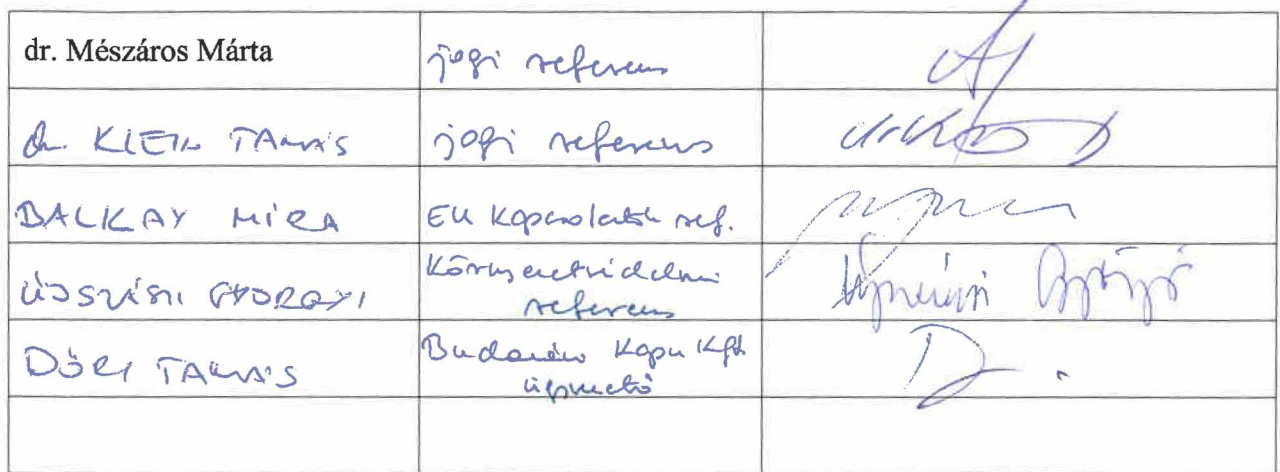 dr. Mészáros Márta
jogi referens
dr. KLEIN TAMÁS
jogi referens
BALKAY MIRA
EU kapcsolatok ref.
ÚJSZÁSZI GYÖRGYI
Környezetvédelmi
referens
DŐRI TAMÁS
Kapu Kft
ügyvezető